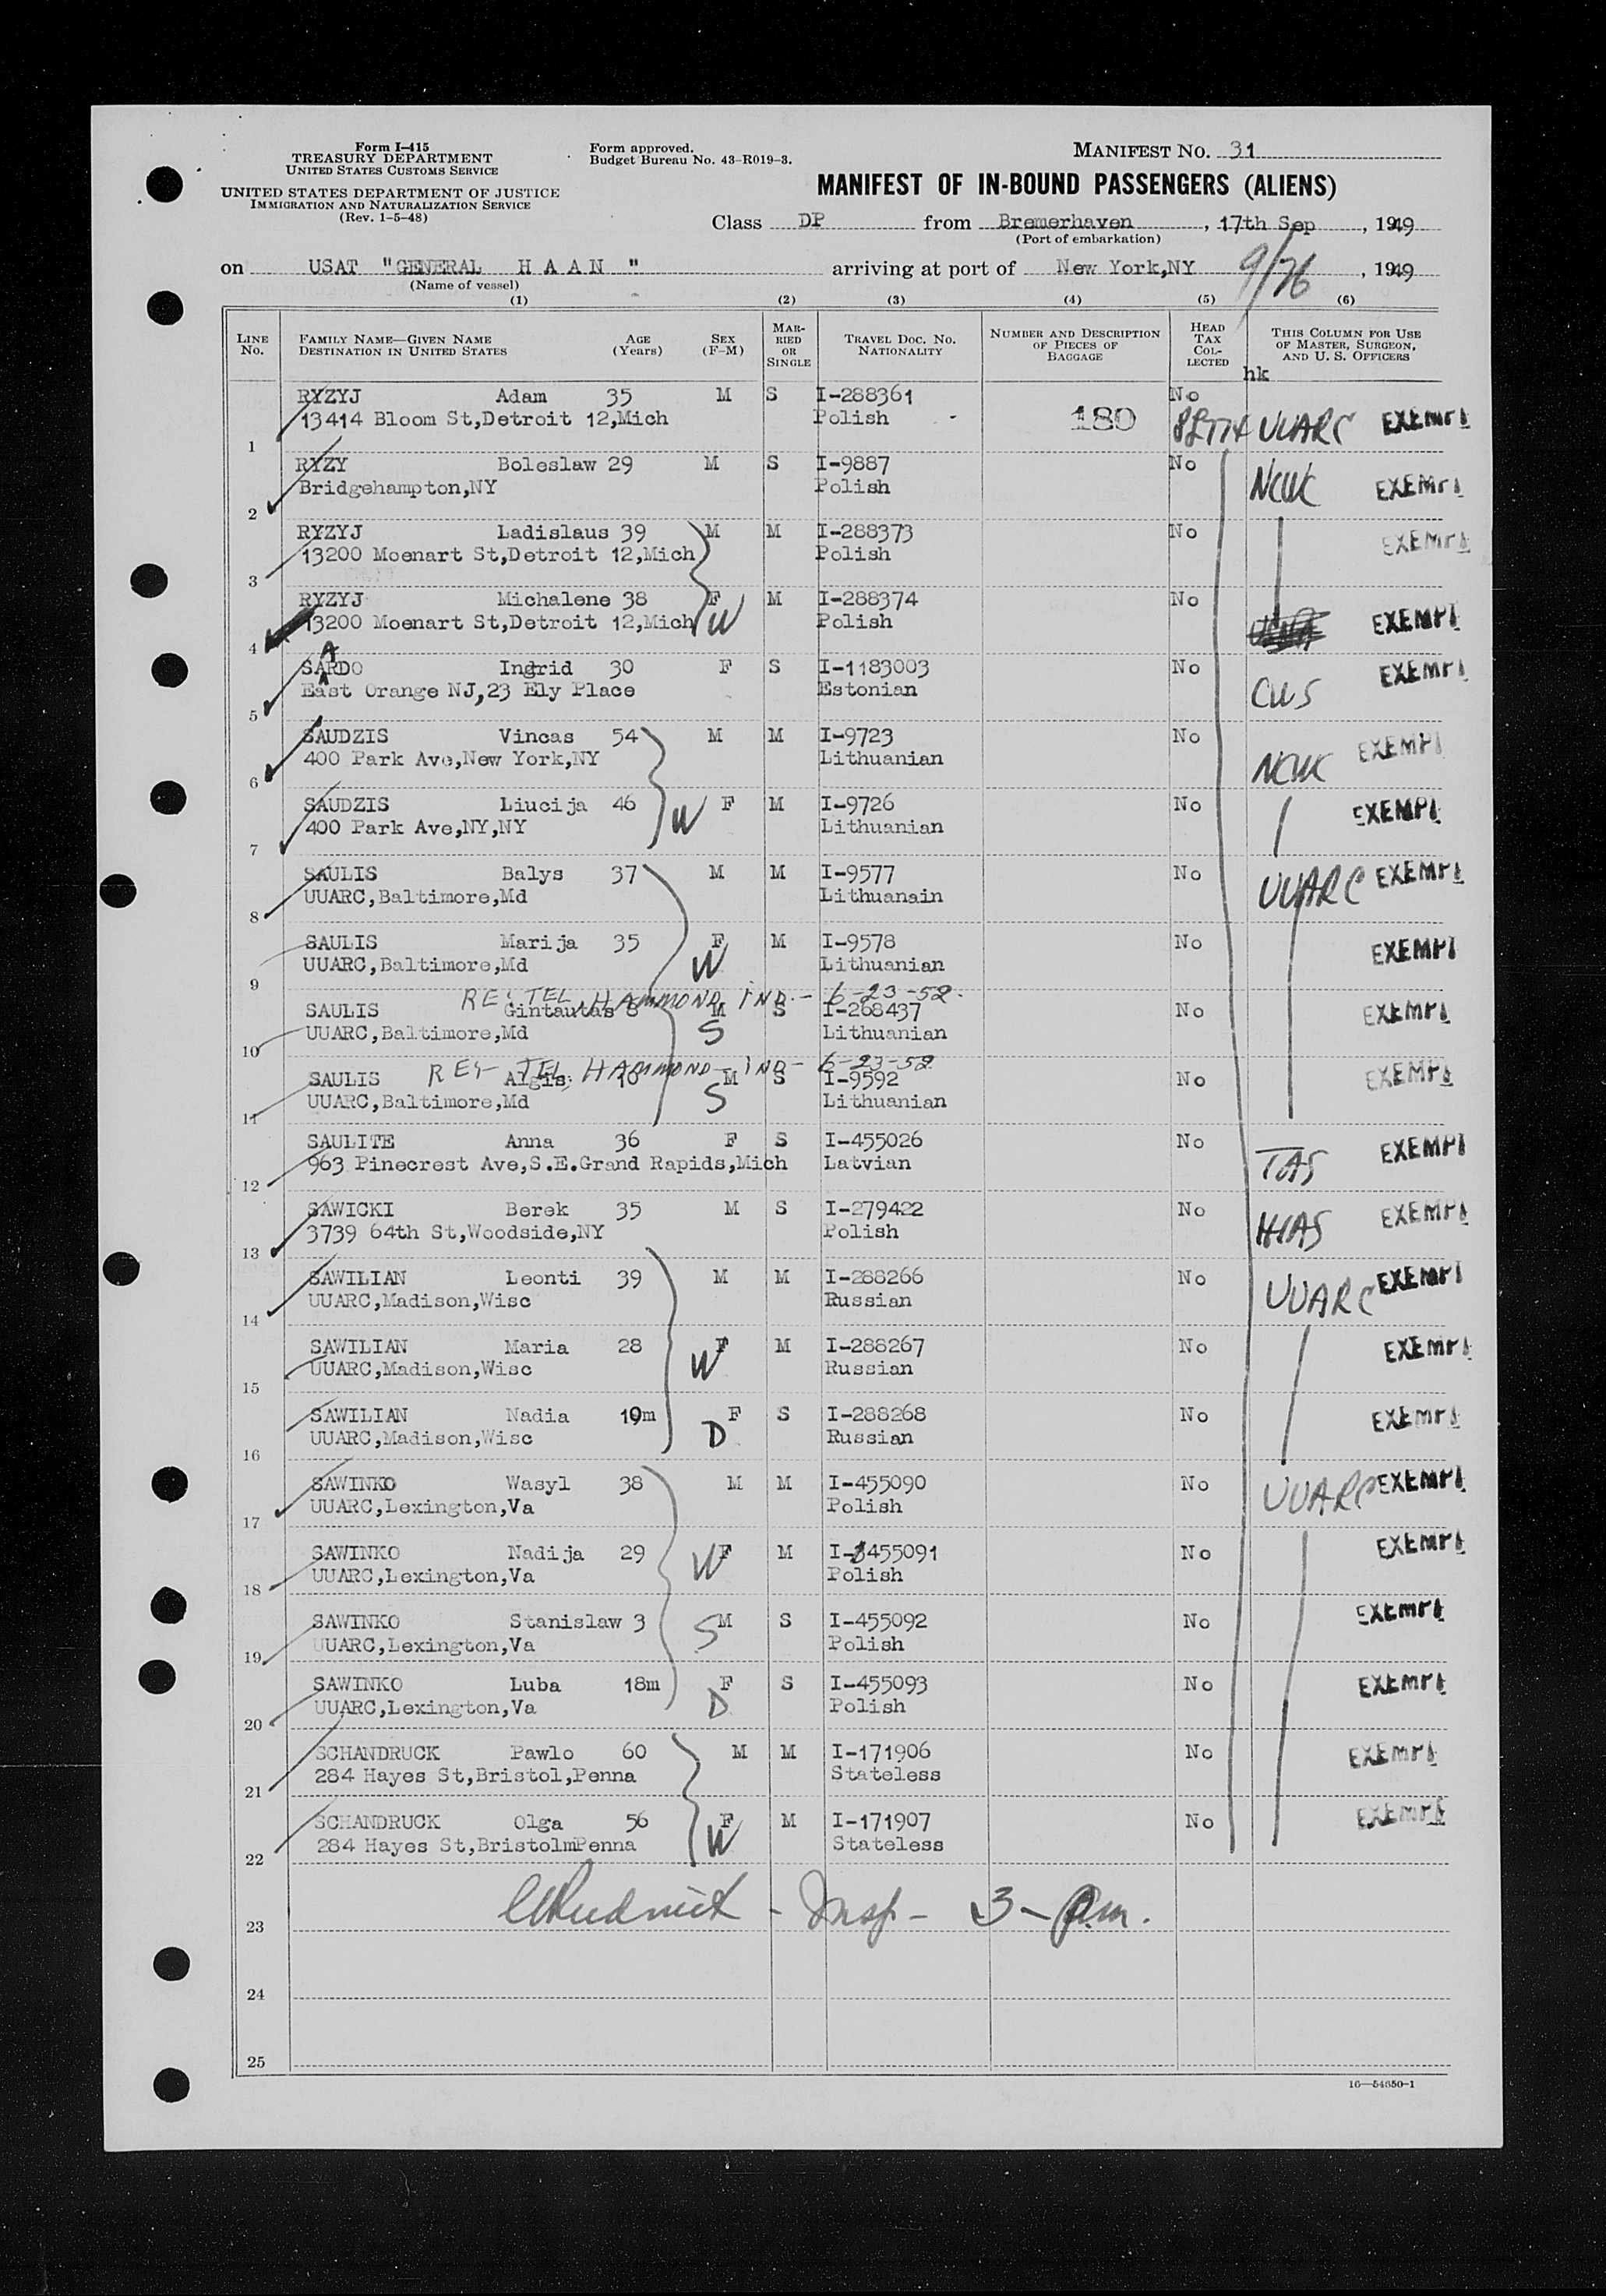 Form I-415
TREASURY DEPARTMENT
UNITED STATES CUSTOMS SERVICE
UNITED STATES DEPARTMENT OF JUSTICE
IMMIGRATION AND NATURALIZATION SERVICE
(Rev. 1-5-48)
Form approved.
Budget Bureau No. 43-R019-3.
MANIFEST NO. 31
MANIFEST OF IN-BOUND PASSENGERS (ALIENS)
Class DP from Bremerhaven, 17th Sep, 1949
(Port of embarkation)
on USAT "GENERAL H A A N " arriving at port of New York,NY 9/26, 1949
(Name of vessel)
(1) (2) (3) (4) (5) (6)
LINE No. FAMILY NAME—GIVEN NAME DESTINATION IN UNITED STATES AGE (Years) SEX (F-M) MARRIED OR SINGLE TRAVEL DOC. NO. NATIONALITY NUMBER AND DESCRIPTION OF PIECES OF BAGGAGE HEAD TAX COLLECTED THIS COLUMN FOR USE OF MASTER, SURGEON, AND U. S. OFFICERS
hk
RYZYJ Adam 35 M S I-288361 No
1 13414 Bloom St,Detroit 12,Mich Polish 180 UUARC EXEMPT
RYZY Boleslaw 29 M S I-9887 No
2 Bridgehampton,NY Polish NCWC EXEMPT
RYZYJ Ladislaus 39 M M I-288373 No
3 13200 Moenart St,Detroit 12,Mich Polish EXEMPT
RYZYJ Michalene 38 F M I-288374 No
4 13200 Moenart St,Detroit 12,Mich W Polish EXEMPT
A
SARDO Ingrid 30 F S I-1183003 No
5 East Orange NJ,23 Ely Place Estonian CWS EXEMPT
SAUDZIS Vincas 54 M M I-9723 No
6 400 Park Ave,New York,NY Lithuanian NCWC EXEMPT
SAUDZIS Liucija 46 W F M I-9726 No
7 400 Park Ave,NY,NY Lithuanian EXEMPT
SAULIS Balys 37 M M I-9577 No
8 UUARC,Baltimore,Md Lithuanain UUARC EXEMPT
SAULIS Marija 35 F M I-9578 No
9 UUARC,Baltimore,Md W Lithuanian EXEMPT
RE: TEL, HAMMOND IND.- 6-23-52.
SAULIS Gintautas 8 M S I-268437 No
10 UUARC,Baltimore,Md S Lithuanian EXEMPT
RE- TEL, HAMMOND- IND- 6-23-52
SAULIS Algis 10 M S I-9592 No
11 UUARC,Baltimore,Md S Lithuanian EXEMPT
SAULITE Anna 36 F S I-455026 No
12 963 Pinecrest Ave,S.E.Grand Rapids,Mich Latvian EXEMPT
SAWICKI Berek 35 M S I-279422 No
13 3739 64th St,Woodside,NY Polish HIAS EXEMPT
SAWILIAN Leonti 39 M M I-288266 No
14 UUARC,Madison,Wisc Russian UUARC EXEMPT
SAWILIAN Maria 28 F M I-288267 No
15 UUARC,Madison,Wisc W Russian EXEMPT
SAWILIAN Nadia 10m F S I-288268 No
16 UUARC,Madison,Wisc D Russian EXEMPT
SAWINKO Wasyl 38 M M I-455090 No
17 UUARC,Lexington,Va Polish UUARC EXEMPT
SAWINKO Nadija 29 W F M I-455091 No
18 UUARC,Lexington,Va Polish EXEMPT
SAWINKO Stanislaw 3 M S I-455092 No
19 UUARC,Lexington,Va S Polish EXEMPT
SAWINKO Luba 18m F S I-455093 No
20 UUARC,Lexington,Va D Polish EXEMPT
SCHANDRUCK Pawlo 60 M M I-171906 No
21 284 Hayes St,Bristol,Penna Stateless EXEMPT
SCHANDRUCK Olga 56 F M I-171907 No
22 284 Hayes St,BristolmPenna W Stateless EXEMPT
23 - Insp - 3- p.m.
24
25
16—54650-1